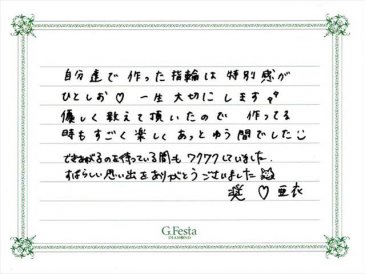 自分達で作った指輪は特別感が
ひとしお♡ 一生大切にします
優しく教えて頂いたので 作ってる
時もすごく楽しくあっとゆう間でした
できあがるのを待っている間もワクワクしていました。
すばらしい思い出をありがとうございました
奨 ♡ 亜衣
G.Festa
DIAMOND